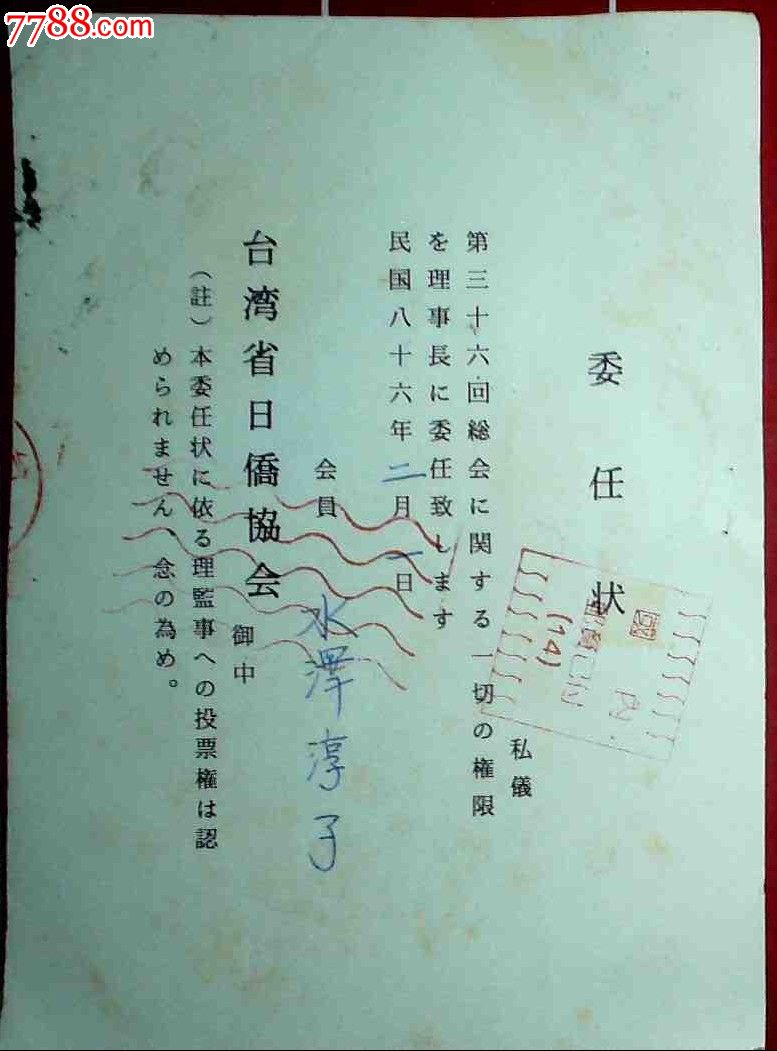 7788.com
委任状
私儀
第三十六回総会に関する一切の権限
を理事長に委任致します
民国八十六年二月一日
会員 水澤淳子
台湾省日僑協会 御中
(註)本委任状に依る理監事への投票権は認
められません、念の為め。
(14)